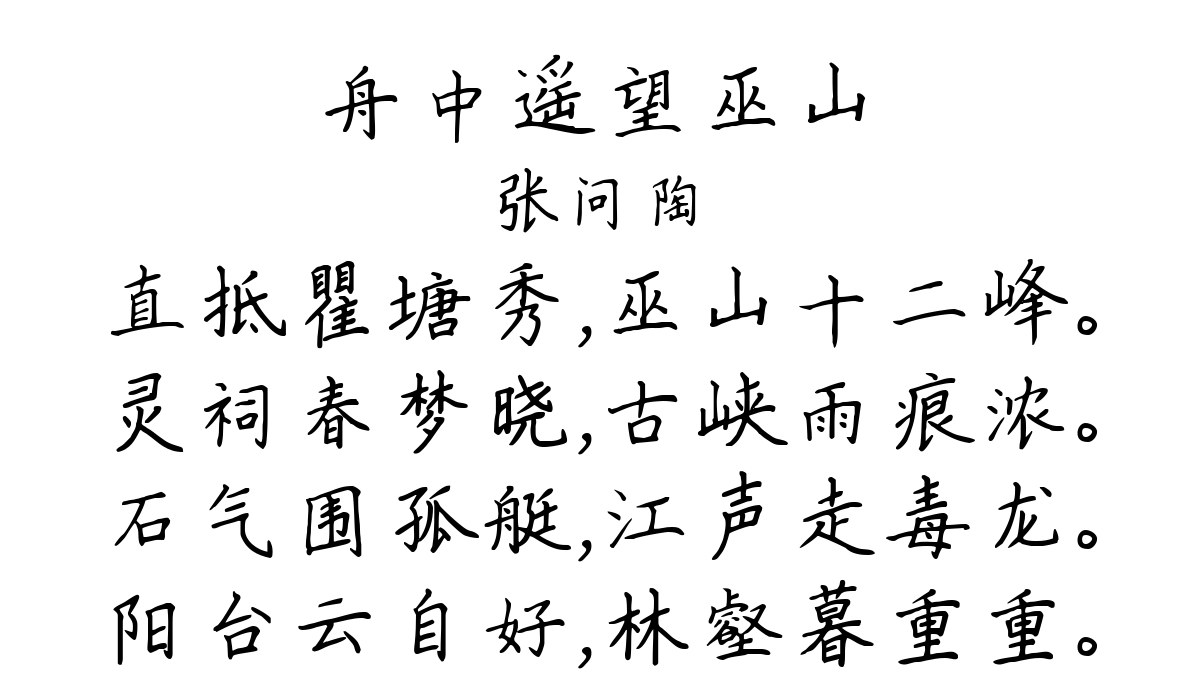 舟中遥望巫山
张问陶
直抵瞿塘秀,巫山十二峰。
灵祠春梦晓,古峡雨痕浓。
石气围孤艇,江声走毒龙。
阳台云自好,林壑暮重重。